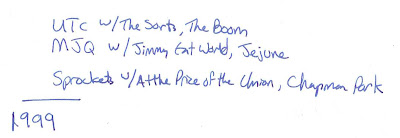 UTC w/The Sorts, The Boom
MJQ w/Jimmy Eat World, Jejune
Sprockets w/At the Price of the Union, Chapman Park
1999